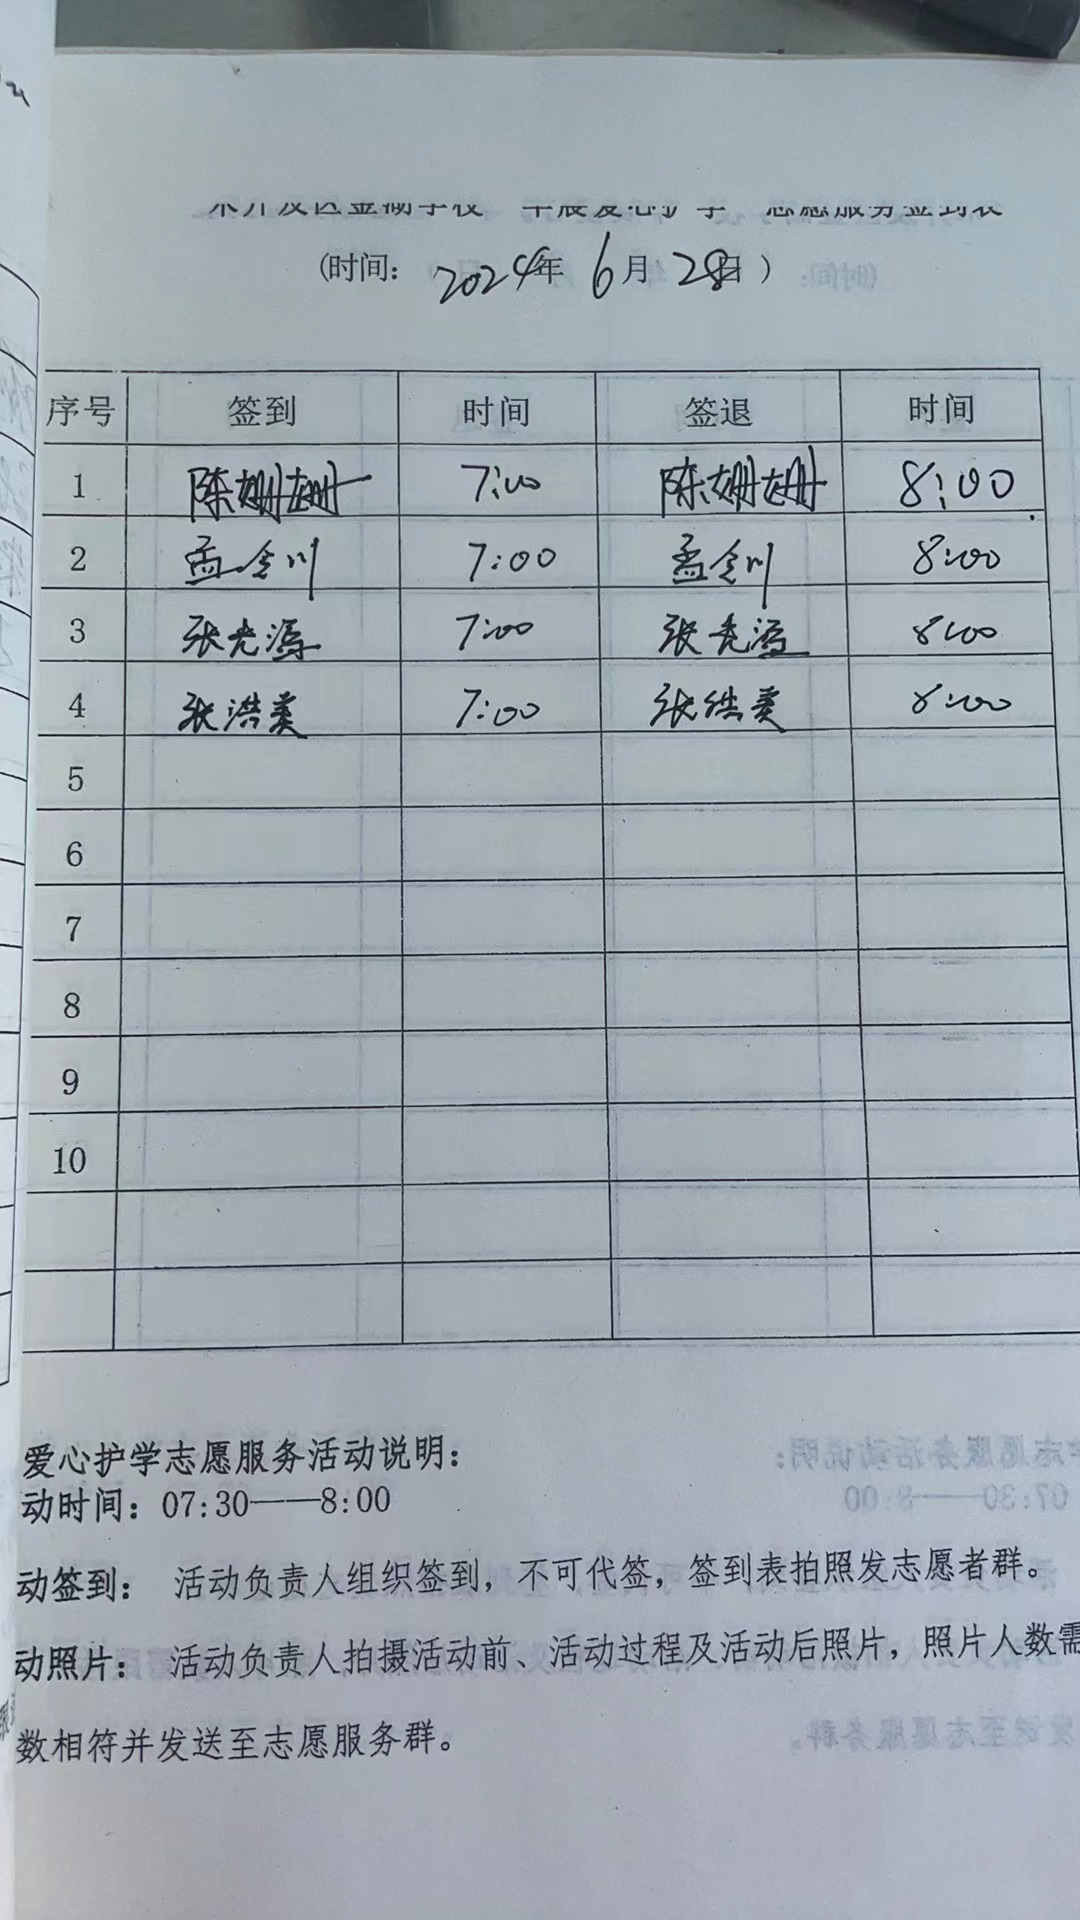 (时间: 2024年 6月 28日 )
序号 签到 时间 签退 时间
1 陈姗姗 7:00 陈姗姗 8:00
2 孟令川 7:00 孟令川 8:00
3 张光源 7:00 张光源 8:00
4 张浩 7:00 张浩 8:00
5
6
7
8
9
10
爱心护学志愿服务活动说明:
动时间: 07:30——8:00
动签到: 活动负责人组织签到, 不可代签, 签到表拍照发志愿者群。
动照片: 活动负责人拍摄活动前、活动过程及活动后照片, 照片人数需
数相符并发送至志愿服务群。